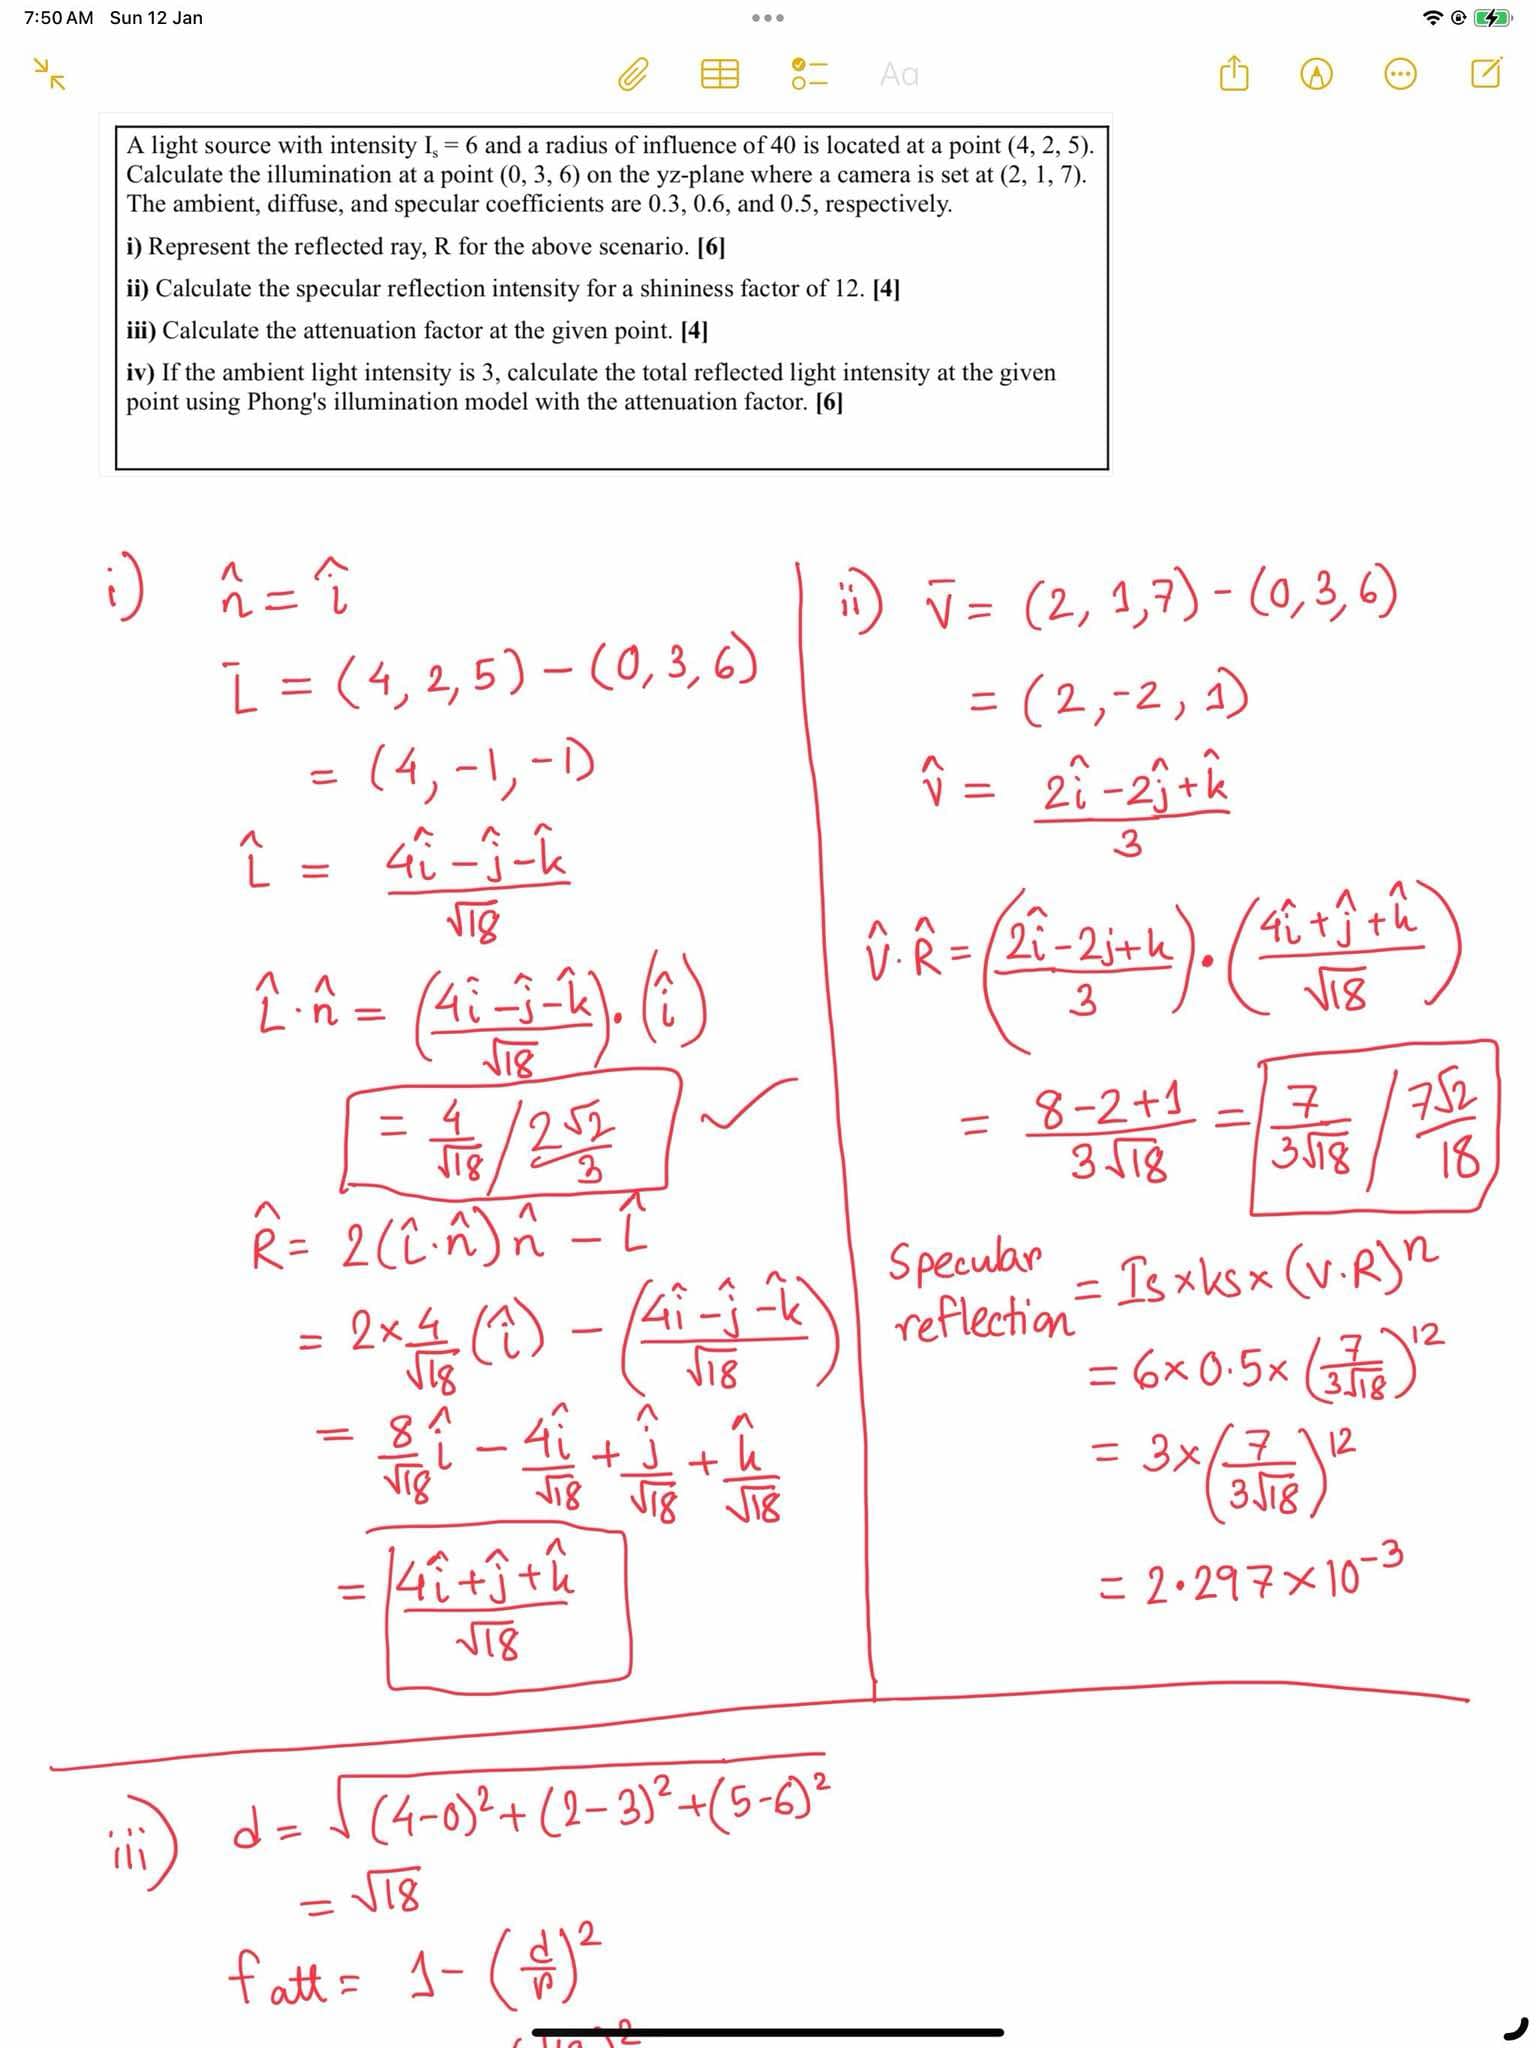 7:50 AM Sun 12 Jan
Aa
A light source with intensity Is = 6 and a radius of influence of 40 is located at a point (4, 2, 5).
Calculate the illumination at a point (0, 3, 6) on the yz-plane where a camera is set at (2, 1, 7).
The ambient, diffuse, and specular coefficients are 0.3, 0.6, and 0.5, respectively.
i) Represent the reflected ray, R for the above scenario. [6]
ii) Calculate the specular reflection intensity for a shininess factor of 12. [4]
iii) Calculate the attenuation factor at the given point. [4]
iv) If the ambient light intensity is 3, calculate the total reflected light intensity at the given
point using Phong's illumination model with the attenuation factor. [6]
i) n̂ = î
L̄ = (4, 2, 5) - (0, 3, 6)
= (4, -1, -1)
L̂ = (4î - ĵ - k̂)/√18
L̂·n̂ = ((4î - ĵ - k̂)/√18)·(î)
= 4/√18 / 2√2/3 ✓
R̂ = 2(L̂·n̂)n̂ - L̂
= 2×4/√18 (î) - ((4î - ĵ - k̂)/√18)
= 8/√18 î - 4î/√18 + ĵ/√18 + k̂/√18
= (4î + ĵ + k̂)/√18
ii) V̄ = (2, 1, 7) - (0, 3, 6)
= (2, -2, 1)
V̂ = (2î - 2ĵ + k̂)/3
V̂·R̂ = ((2î - 2j + k)/3)·((4î + ĵ + k̂)/√18)
= (8-2+1)/3√18 = 7/3√18 / 7√2/18
Specular reflection = Is×ks×(V.R)ⁿ
= 6×0.5×(7/3√18)¹²
= 3×(7/3√18)¹²
= 2.297×10⁻³
iii) d = √(4-0)²+(2-3)²+(5-6)²
= √18
fatt = 1 - (d/r)²